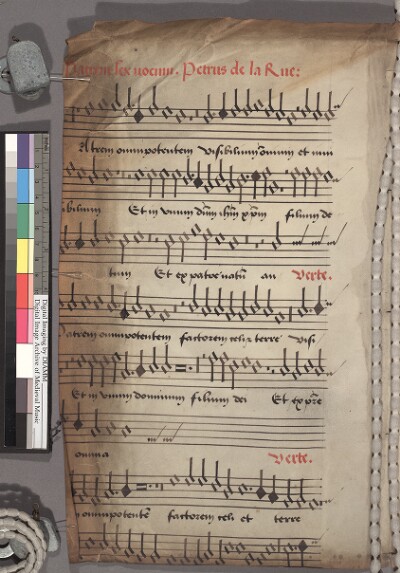 Patrem sex vocum. Petrus de la Rue:
Atrem omnipotentem visibilium omnium et invi
sibilium Et in vnum dnm ihm xpm filium de
tum Et ex patre natu an Verte.
Patrem omnipotentem factorem celi z terre visi
Et in vnum dominum filium dei Et ex pre
omnia Verte.
omnipotente factorem celi et terre
Digital Imaging by DIAMM
Digital Image Archive of Medieval Music